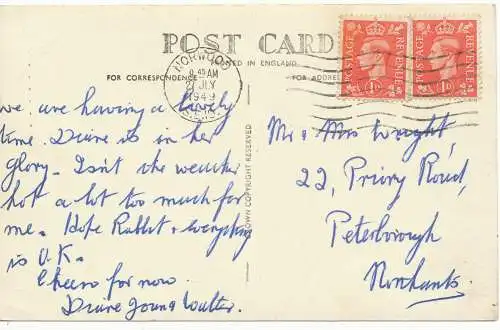 POST CARD
PRINTED IN ENGLAND.
FOR CORRESPONDENCE
FOR ADDRESS
CROWN COPYRIGHT RESERVED
NORWOOD
JLY
1949
POSTAGE
REVENUE
1D
POSTAGE
REVENUE
1D
we are having a lovely
time. Diane is in her
glory. Isn't the weather
hot a lot too much for
me. Hope Rabbit & everything
is O.K.
Cheerio for now
Diane Joan & Walter.
Mr & Mrs Wright,
22, Priory Road,
Peterborough
Northants.